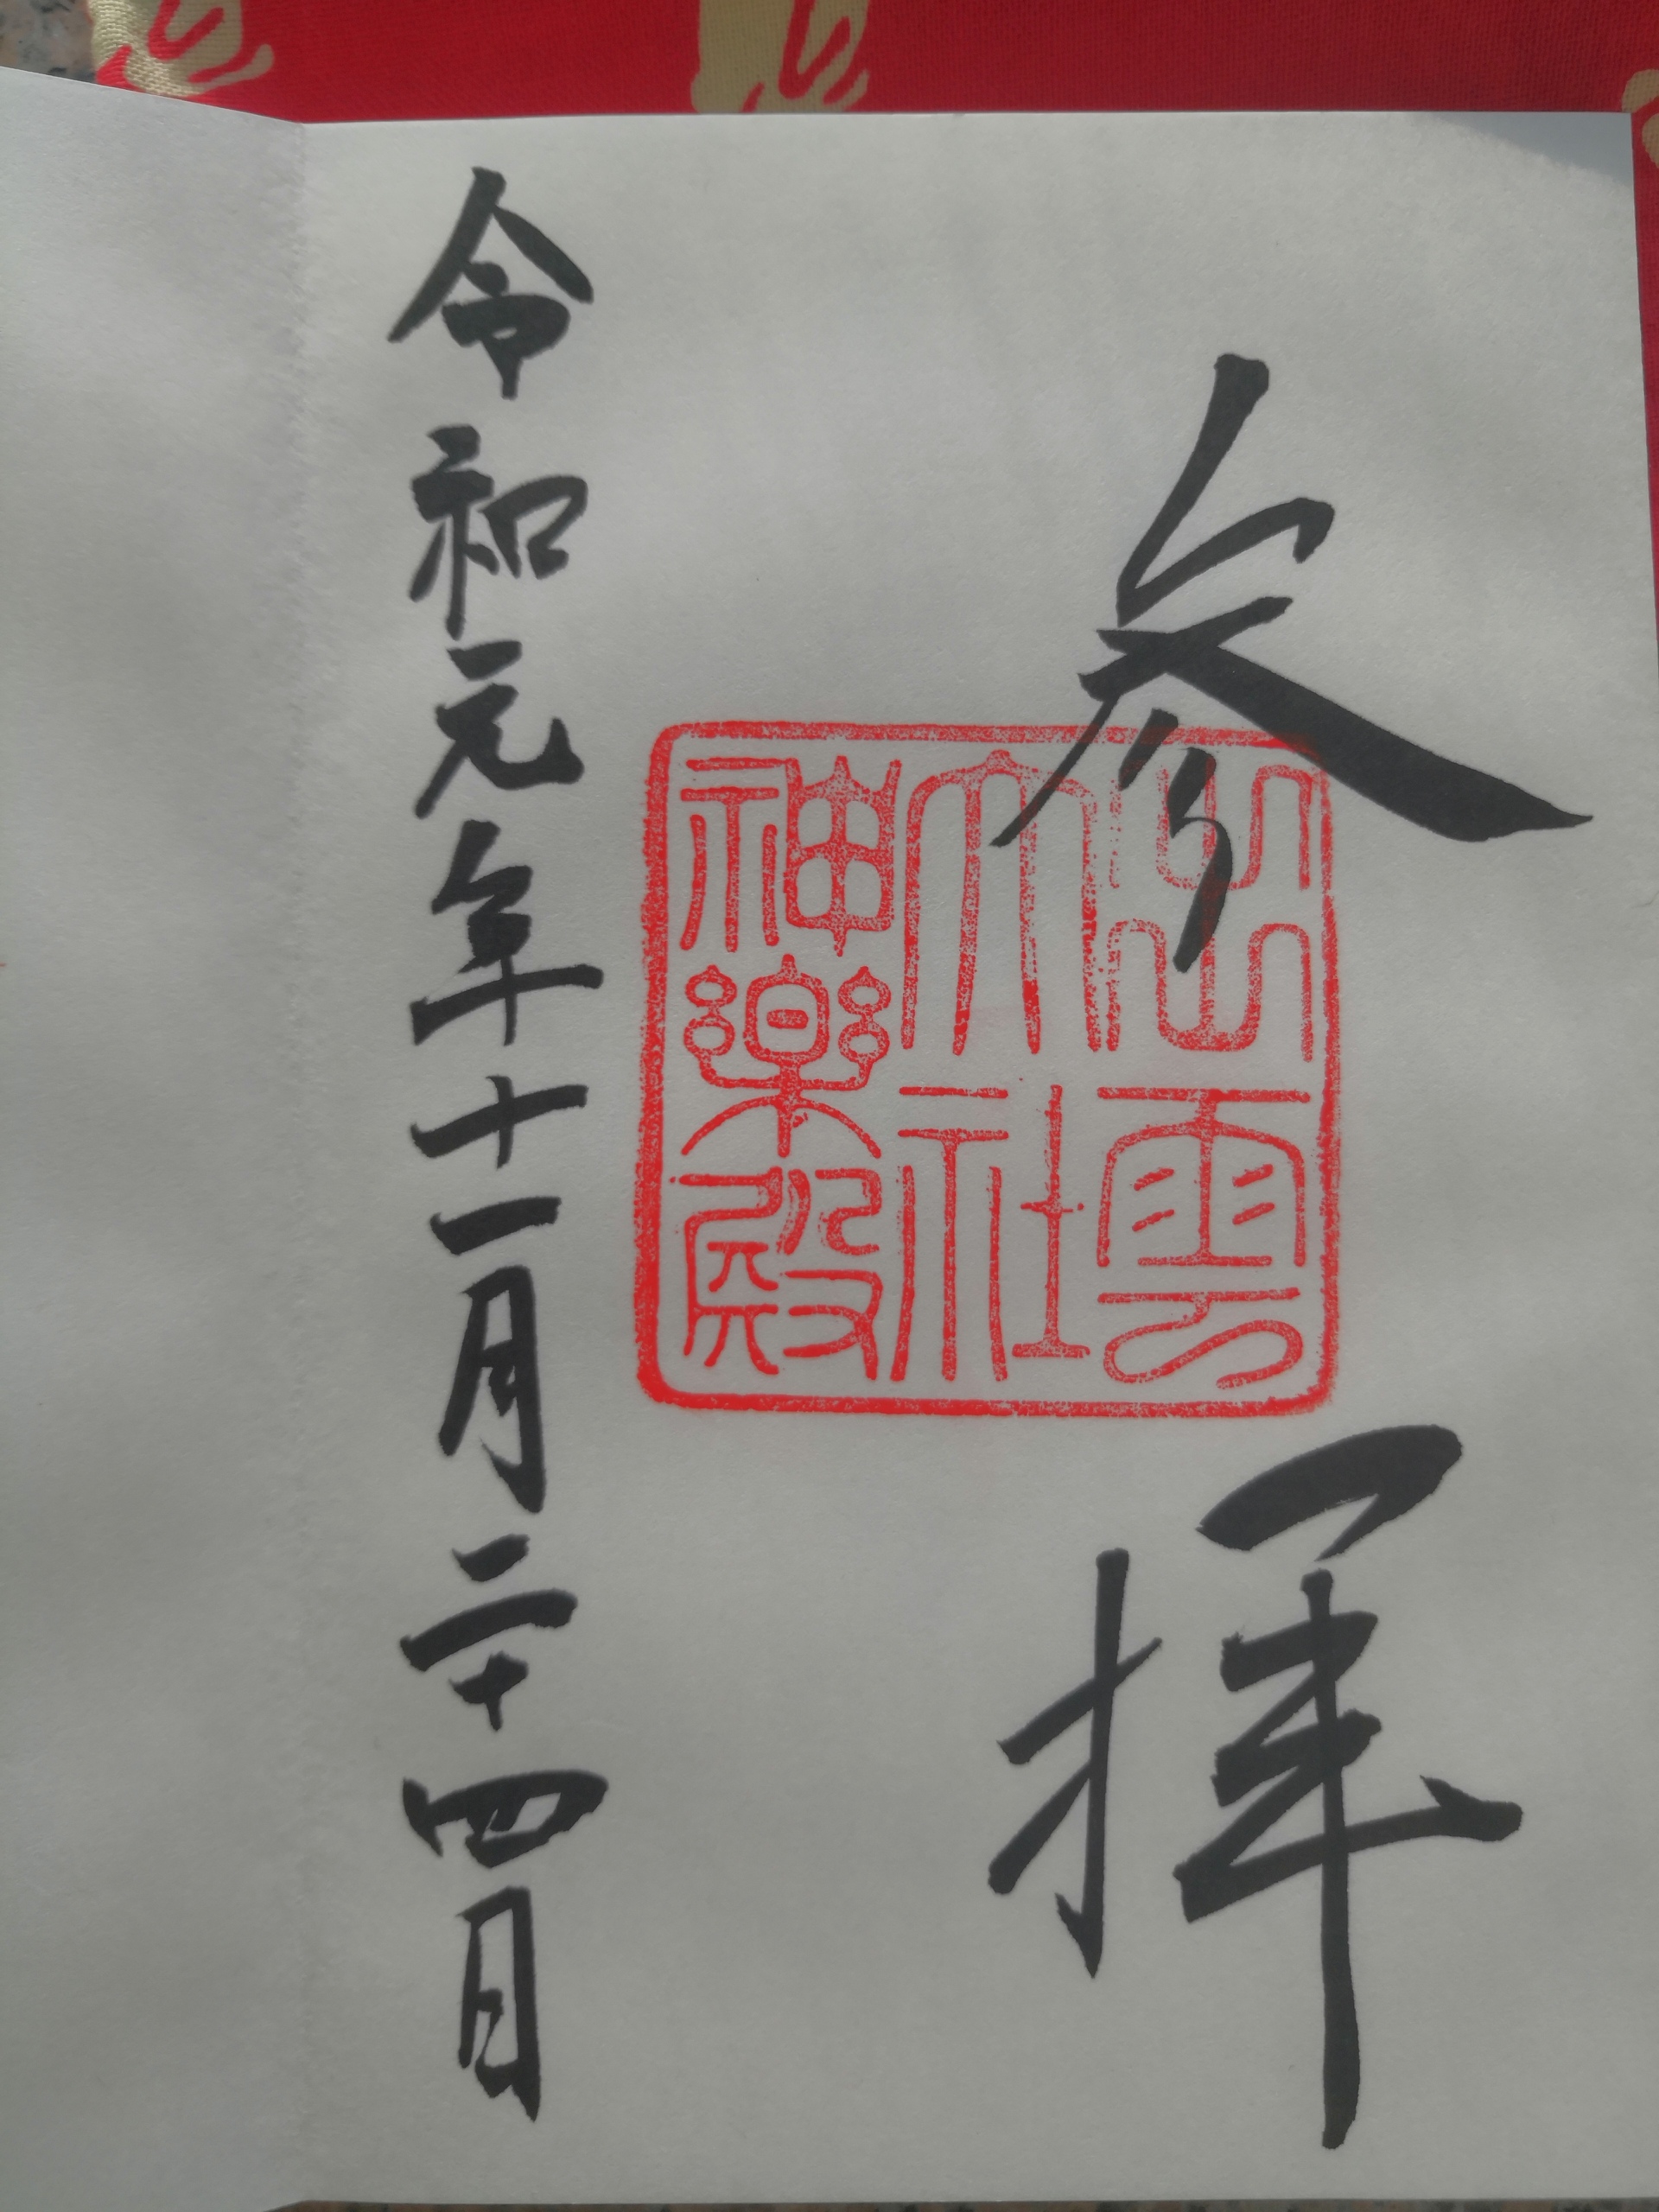 参拝
出雲
大社
神楽殿
令和元年十一月二十四日